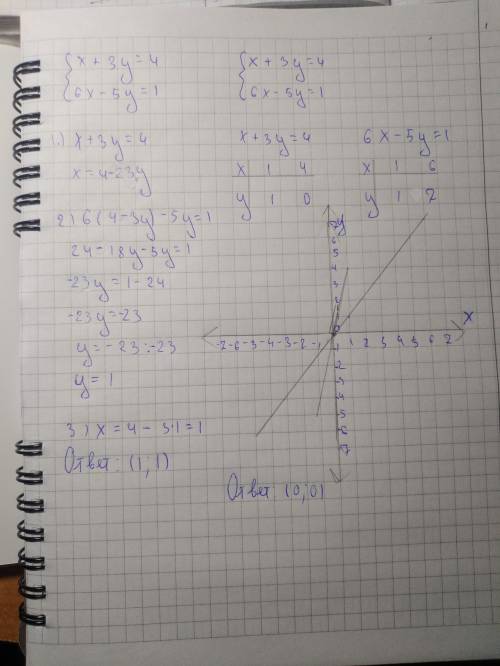 {x + 3y = 4
{6x - 5y = 1
1.) x + 3y = 4
x = 4 - 23y
2) 6(4 - 3y) - 5y = 1
24 - 18y - 5y = 1
-23y = 1 - 24
-23y = -23
y = -23 : -23
y = 1
3) x = 4 - 3·1 = 1
Ответ: (1; 1)
{x + 3y = 4
{6x - 5y = 1
x + 3y = 4
x 1 4
y 1 0
6x - 5y = 1
x 1 6
y 1 2
y
7
6
5
4
3
2
1
0
x
-7 -6 -5 -4 -3 -2 -1
1 2 3 4 5 6 7
1
2
3
4
5
6
7
Ответ (0; 0)